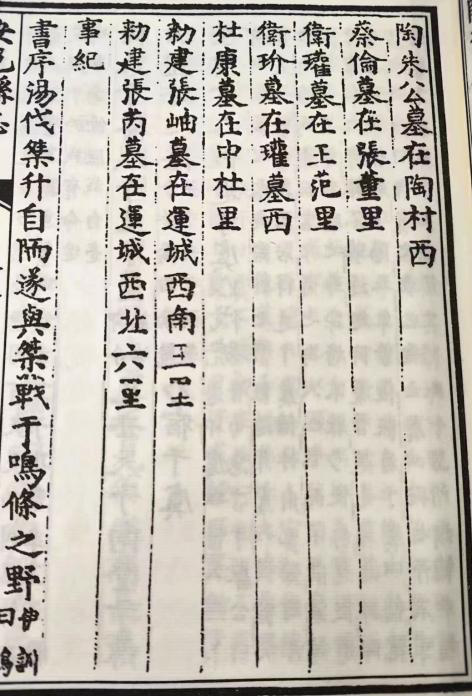 陶朱公墓在陶村西
蔡倫墓在張董里
衛瓘墓在王范里
衛玠墓在瓘墓西
杜康墓在中杜里
勅建張岫墓在運城西南二里
勅建張芮墓在運城西北六里
事紀
書序湯伐桀升自陑遂與桀戰于鳴條之野伊訓曰鳴
安邑縣志